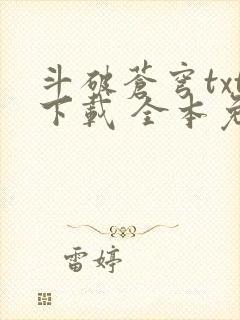 斗破蒼穹txt
下載 全本免
雷婷